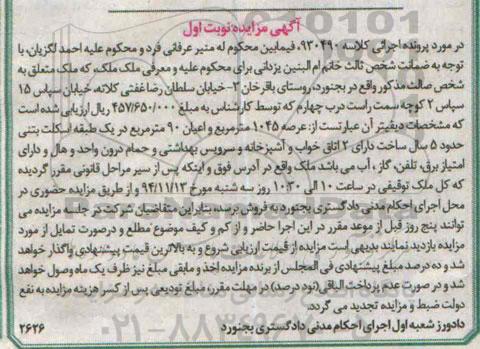 آگهی مزایده نوبت اول
در مورد پرونده اجرائی کلاسه ۹۳۰۴۹۰، فیمابین محکوم له منیر عرفانی فرد و محکوم علیه احمد لگزیان، با
توجه به ضمانت شخص ثالث خانم ام البنین یزدانی برای محکوم علیه و معرفی ملک ملکه، که ملک متعلق به
شخص صالث مذکور واقع در بجنورد، روستای باقرخان ۳-خیابان سلطان رضا غفتی کلاته، خیابان سپاس ۱۵
سپاس ۲ کوچه سمت راست درب چهارم که توسط کارشناس به مبلغ ۴۵۷/۶۵۰/۰۰۰ ریال ارزیابی شده است
که مشخصات دقیقتر آن عبارتست از: عرصه ۱۰۴۵ مترمربع و اعیان ۹۰ مترمربع در یک طبقه اسکلت بتنی
حدود ۵ سال ساخت دارای ۲ اتاق خواب و آشپزخانه و سرویس بهداشتی و حمام درون واحد و هال و دارای
امتیاز برق، تلفن، گاز، آب می باشد ملک واقع در آدرس فوق و اینکه پس از سیر مراحل قانونی مقرر گردیده
که کل ملک توقیفی در ساعت ۱۰ الی ۱۰:۳۰ روز سه شنبه مورخ ۹۴/۱۱/۱۳ و از طریق مزایده حضوری در
محل اجرای احکام مدنی دادگستری بجنورد به فروش برسد، بنابراین متقاضیان شرکت در جلسه مزایده می
توانند پنج روز قبل از موعد مقرر در این اجرا حاضر و از کم و کیف موضوع مطلع و درصورت تمایل از مورد
مزایده بازدید نمایند بدیهی است مزایده از قیمت ارزیابی شروع و به بالاترین قیمت پیشنهادی واگذار خواهد
شد و ده درصد مبلغ پیشنهادی فی المجلس از برنده مزایده اخذ و مابقی مبلغ نیز ظرف یک ماه وصول خواهد
شد و در صورت عدم پرداخت الباقی (نود درصد) در مهلت مقرر، مبلغ تودیعی پس از کسر هزینه مزایده به نفع
دولت ضبط و مزایده تجدید می گردد.
دادورز شعبه اول اجرای احکام مدنی دادگستری بجنورد ۲۶۲۶
۰۲۱-۸۸۳۴۹۶۷۰